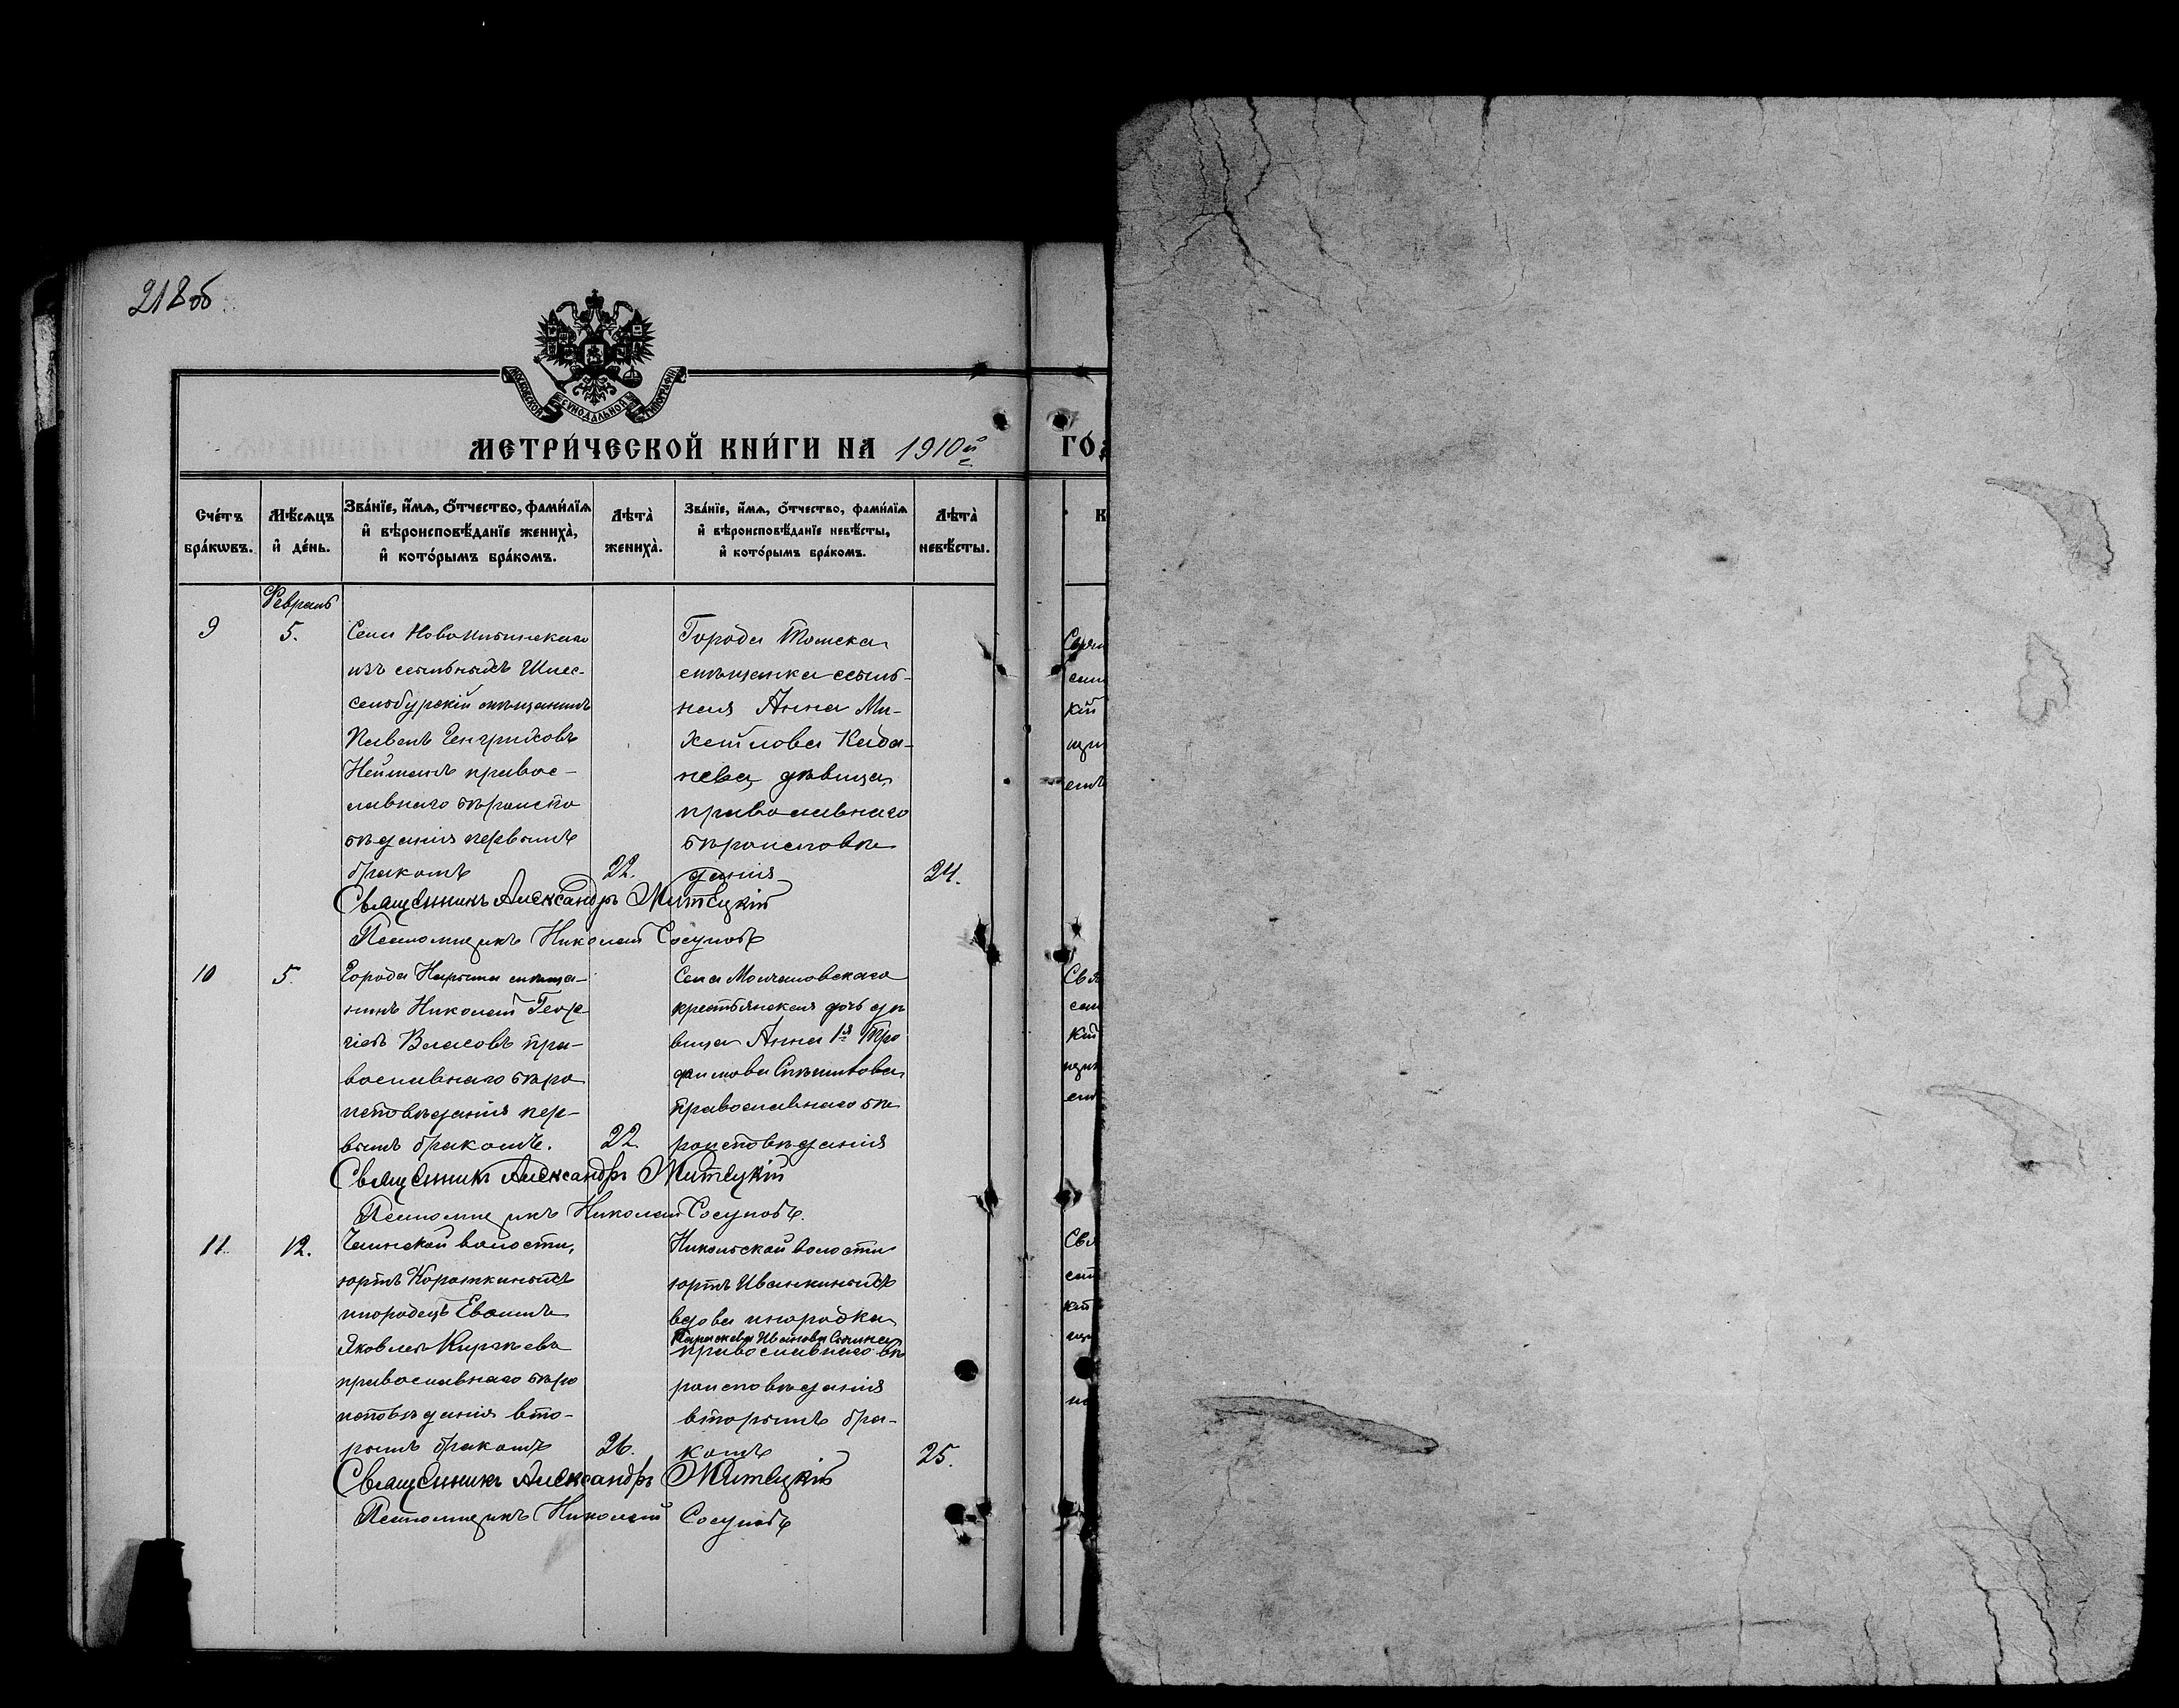 218 об
МОСКОВСКОЙ СѴНОДАЛЬНОЙ ТИПОГРАФІИ
МЕТРИ́ЧЕСКОЙ КНИ́ГИ НА 1910й ГО́Д
Сче́тъ бра́кѡвъ.
Мѣ́сѧцъ и҆ де́нь.
Зва́нїе, и҆́мѧ, ѻ҆́тчество, фами́лїѧ
и҆ вѣроисповѣ́данїе жениха̀,
и҆ кото́рымъ бра́комъ.
Лѣта̀ жениха̀.
Зва́нїе, и҆́мѧ, ѻ҆́тчество, фами́лїѧ
и҆ вѣроисповѣ́данїе невѣ́сты,
и҆ кото́рымъ бра́комъ.
Лѣта̀ невѣ́сты.
Февраль
9
5.
Села Новоильинскаго
изъ ссыльныхъ Шлис-
сельбургскій мѣщанинъ
Павелъ Генриховъ
Нейманъ правос-
лавнаго вѣроиспо
вѣданія первымъ
бракомъ
22.
Города Томска
мѣщанка ссыль-
ная Анна Ми-
хайлова Када-
нева, дѣвица,
православнаго
вѣроисповѣ
данія
24.
Священникъ Александръ Митецкій
Псаломщикъ Николай Сосуновъ
10
5.
Города Нарыма мѣща-
нинъ Николай Геор-
гіевъ Власовъ пра-
вославнаго вѣро
исповѣданія пер-
вымъ бракомъ.
22
Села Молчановскаго
крестьянская дочь дѣ
вица Анна 1я Тро
фимова
православнаго вѣ
роисповѣданія
Священникъ Александръ Митецкій
Псаломщикъ Николай Сосуновъ.
11.
12.
Чаинской волости,
юртъ Короткиныхъ
инородецъ
Яковлевъ Киргѣевъ
православнаго вѣро
исповѣданія вто-
рымъ бракомъ
26.
Никольской волости
юртъ Иванкиныхъ
вдова инородка
Параскева Иванова
православнаго вѣ
роисповѣданія
вторымъ бра-
комъ
25.
Священникъ Александръ Митецкій
Псаломщикъ Николай Сосуновъ